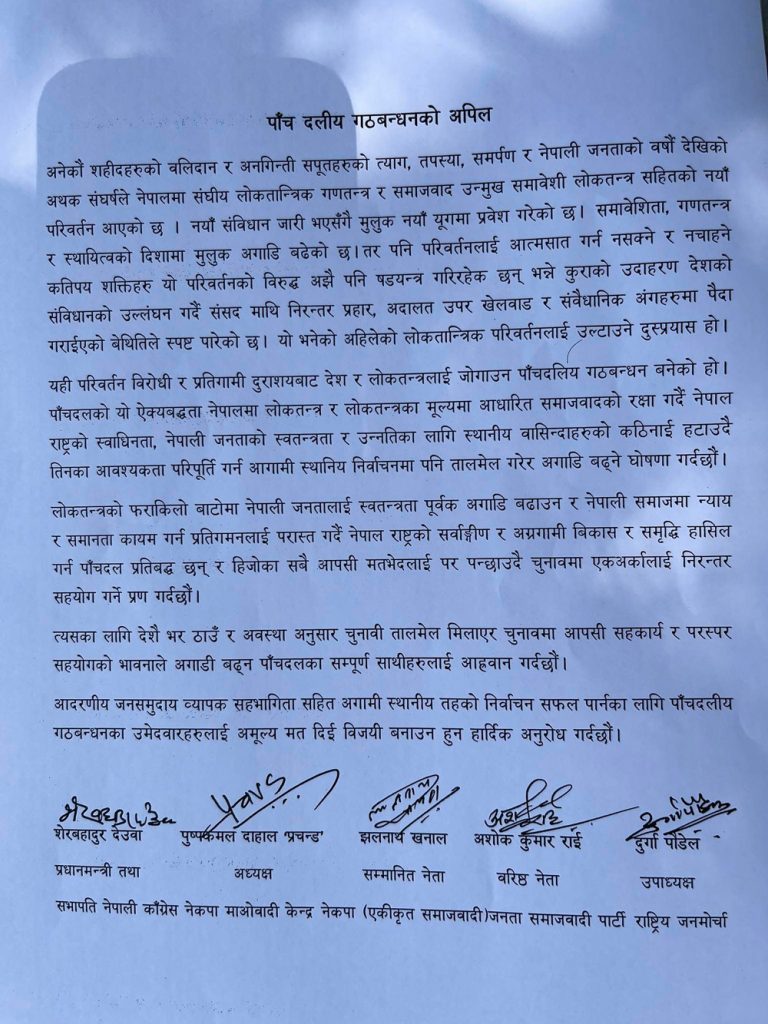 पाँच दलीय गठबन्धनको अपिल
अनेकौ शहीदहरुको बलिदान र अनगिन्ती सपूतहरुको त्याग, तपस्या, समर्पण र नेपाली जनताको वर्षौ देखिको
अथक संघर्षले नेपालमा संघीय लोकतान्त्रिक गणतन्त्र र समाजवाद उन्मुख समावेशी लोकतन्त्र सहितको नयाँ
परिवर्तन आएको छ । नयाँ संविधान जारी भएसँगै मुलुक नयाँ यूगमा प्रवेश गरेको छ। समावेशिता, गणतन्त्र
र स्थायित्वको दिशामा मुलुक अगाडि बढेको छ।तर पनि परिवर्तनलाई आत्मसात गर्न नसक्ने र नचाहने
कतिपय शक्तिहरु यो परिवर्तनको विरुद्ध अझै पनि षडयन्त्र गरिरहेक छन् भन्ने कुराको उदाहरण देशको
संविधानको उल्लंघन गर्दै संसद माथि निरन्तर प्रहार, अदालत उपर खेलवाड र संवैधानिक अंगहरुमा पैदा
गराईएको बेथितिले स्पष्ट पारेको छ। यो भनेको अहिलेको लोकतान्त्रिक परिवर्तनलाई उल्टाउने दुस्प्रयास हो।
यही परिवर्तन विरोधी र प्रतिगामी दुराशयबाट देश र लोकतन्त्रलाई जोगाउन पाँचदलिय गठबन्धन बनेको हो।
पाँचदलको यो ऐक्यबद्धता नेपालमा लोकतन्त्र र लोकतन्त्रका मूल्यमा आधारित समाजवादको रक्षा गर्दै नेपाल
राष्ट्रको स्वाधिनता, नेपाली जनताको स्वतन्त्रता र उन्नतिका लागि स्थानीय वासिन्दाहरुको कठिनाई हटाउदै
तिनका आवश्यकता परिपूर्ति गर्न आगामी स्थानिय निर्वाचनमा पनि तालमेल गरेर अगाडि बढ्ने घोषणा गर्दछौं।
लोकतन्त्रको फराकिलो बाटोमा नेपाली जनतालाई स्वतन्त्रता पूर्वक अगाडि बढाउन र नेपाली समाजमा न्याय
र समानता कायम गर्न प्रतिगमनलाई परास्त गर्दै नेपाल राष्ट्रको सर्वाङ्गीण र अग्रगामी बिकास र समृद्धि हासिल
गर्न पाँचदल प्रतिबद्ध छन् र हिजोका सबै आपसी मतभेदलाई पर पन्छाउदै चुनावमा एकअर्कालाई निरन्तर
सहयोग गर्ने प्रण गर्दछौं।
त्यसका लागि देशै भर ठाउँ र अवस्था अनुसार चुनावी तालमेल मिलाएर चुनावमा आपसी सहकार्य र परस्पर
सहयोगको भावनाले अगाडी बढ्न पाँचदलका सम्पूर्ण साथीहरुलाई आह्रवान गर्दछौं।
आदरणीय जनसमुदाय व्यापक सहभागिता सहित अगामी स्थानीय तहको निर्वाचन सफल पार्नका लागि पाँचदलीय
गठबन्धनका उमेदवारहरुलाई अमूल्य मत दिई विजयी बनाउन हुन हार्दिक अनुरोध गर्दछौं।
शेरबहादुर देउवा पुष्पकमल दाहाल 'प्रचन्ड' झलनाथ खनाल अशोक कुमार राई दुर्गा पौडेल
प्रधानमन्त्री तथा अध्यक्ष सम्मानित नेता वरिष्ठ नेता उपाध्यक्ष
सभापति नेपाली काँग्रेस नेकपा माओवादी केन्द्र नेकपा (एकीकृत समाजवादी)जनता समाजवादी पार्टी राष्ट्रिय जनमोर्चा